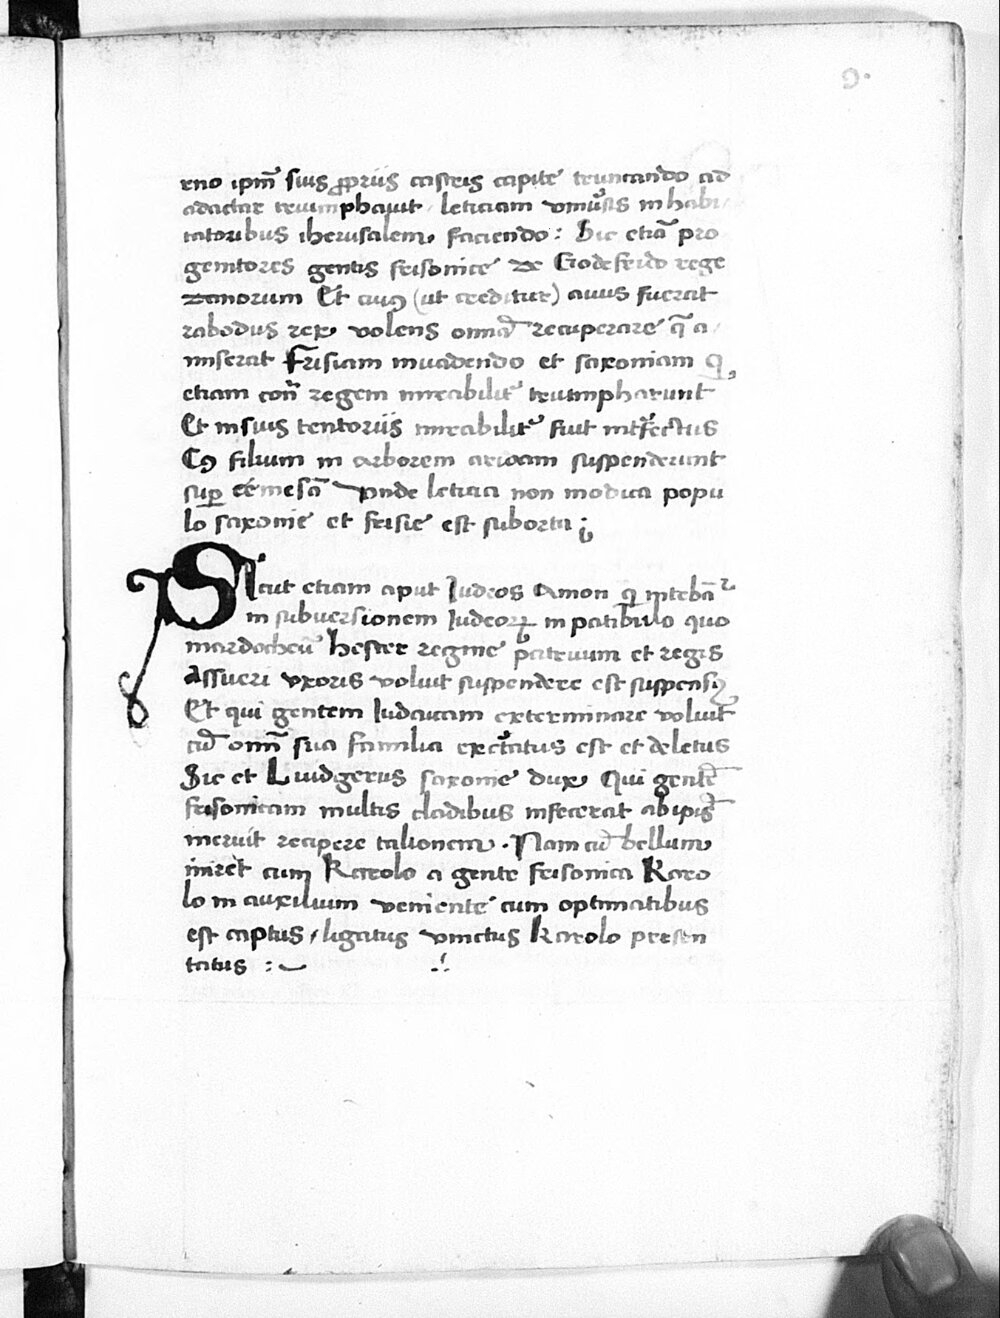 9.
rno ip̄m suis propriis castris capite truncando ad
adactar triumphauit / leticiam vniu͛sis inhabi
tatoribus iherusalem faciendo : Sic etiā pro
genitores gentis frisonice de Godefrido rege
danorum Et cuiꝯ (ut creditur) auus fuerat
rabodus rex volens omnia recuperare q̄ a
miserat Frisiam inuadendo et saxoniam
etiam con̄ regem mirabilit͛ triumpharunt
Et in suis tentoriis mirabilit͛ fuit int͛fectus
Cꝯ filium in arborem arioam suspenderunt
suꝑ eēmesā vnde leticia non modica popu
lo saxonie et frisie est suborta ;
Sicut etiam aput Iudeos Amon q̄ intēbāt
in subuersionem Iudeoꝝ in patibulo quo
mardocheū Hester regine patruum et regis
Assueri vxoris voluit suspendere est suspensꝯ
Et qui gentem Iudaicam exterminare voluit
cū om̄i sua familia exct͛atus est et deletus
Sic et Luidgerus saxonie dux Qui gentē
frisonicam multis cladibus infecerat ab ipis̄
meruit recipere talionem . Nam cū bellum
iniret cum Karolo a gente frisonica Karo
lo in auxilium veniente cum optimatibus
est captus / ligatus vinctus Karolo presen
tatus :~